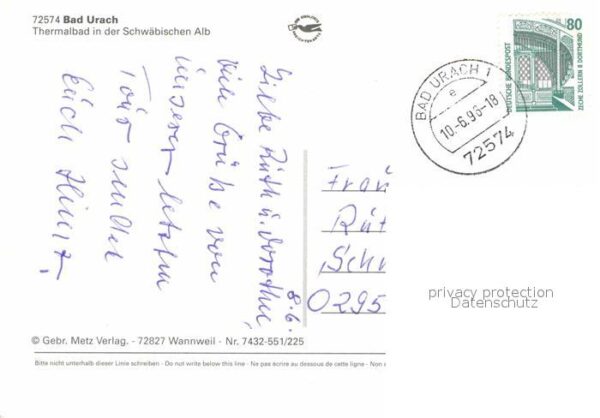 72574 Bad Urach
Thermalbad in der Schwäbischen Alb
80
DEUTSCHE BUNDESPOST
ZECHE ZOLLERN II DORTMUND
BAD URACH 1
e
10.-6.96-18
72574
8.6.
Liebe Ruth u. Dorothee,
viele Grüße von
unserer letzten
Tour sendet
Euch
Frau
Rut
Schn
0295
privacy protection
Datenschutz
© Gebr. Metz Verlag. - 72827 Wannweil - Nr. 7432-551/225
Bitte nicht unterhalb dieser Linie schreiben - Do not write below this line - Ne pas écrire au dessous de cette ligne - Non